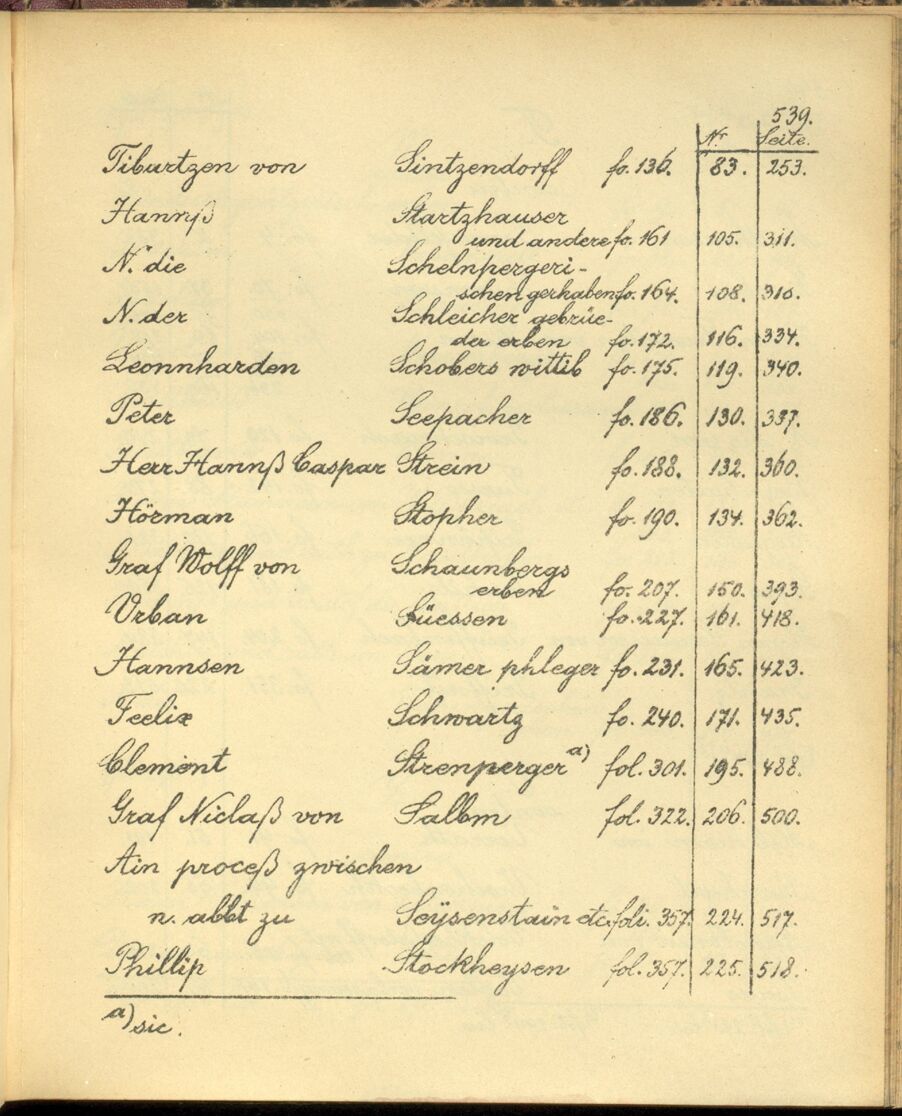 539.
Nr. Seite.
Tiburtzen von Sintzendorff fo. 136. 83. 253.
Hannß Startzhauser
und andere fo. 161 105. 311.
N. die Schelnpergeri-
schen gerhaben fo. 164. 108. 316.
N. der Schleicher gebrüe-
der erben fo. 172. 116. 334.
Leonnharden Schobers wittib fo. 175. 119. 340.
Peter Seepacher fo. 186. 130. 337.
Herr Hannß Caspar Strein fo. 188. 132. 360.
Hörman Stopher fo. 190. 134. 362.
Graf Wolff von Schaunbergs
erben fo. 207. 150. 393.
Urban Süessen fo. 227. 161. 418.
Hannsen Sämer phleger fo. 231. 165. 423.
Feelix Schwartz fo. 240. 171. 435.
Clement Strenperger a) fol. 301. 195. 488.
Graf Niclaß von Salbm fol. 322. 206. 500.
Ain proceß zwischen
n. abbt zu Seÿsenstain etc. foli. 357. 224. 517.
Phillip Stockheysen fol. 357. 225. 518.
a) sic.